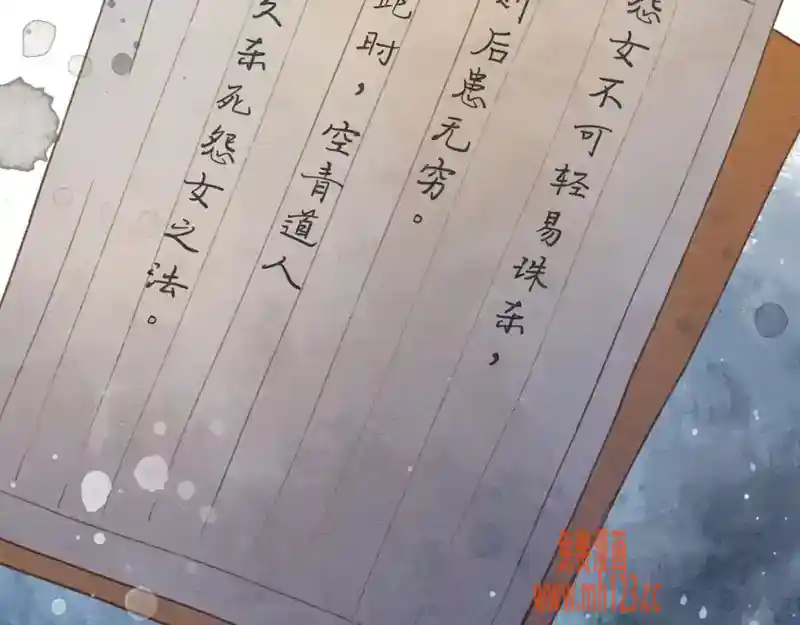 怨女不可轻易珠杀，
则后患无穷。
此时，空青道人
杀死怨女之法。
免费漫画
www.mh123.cc